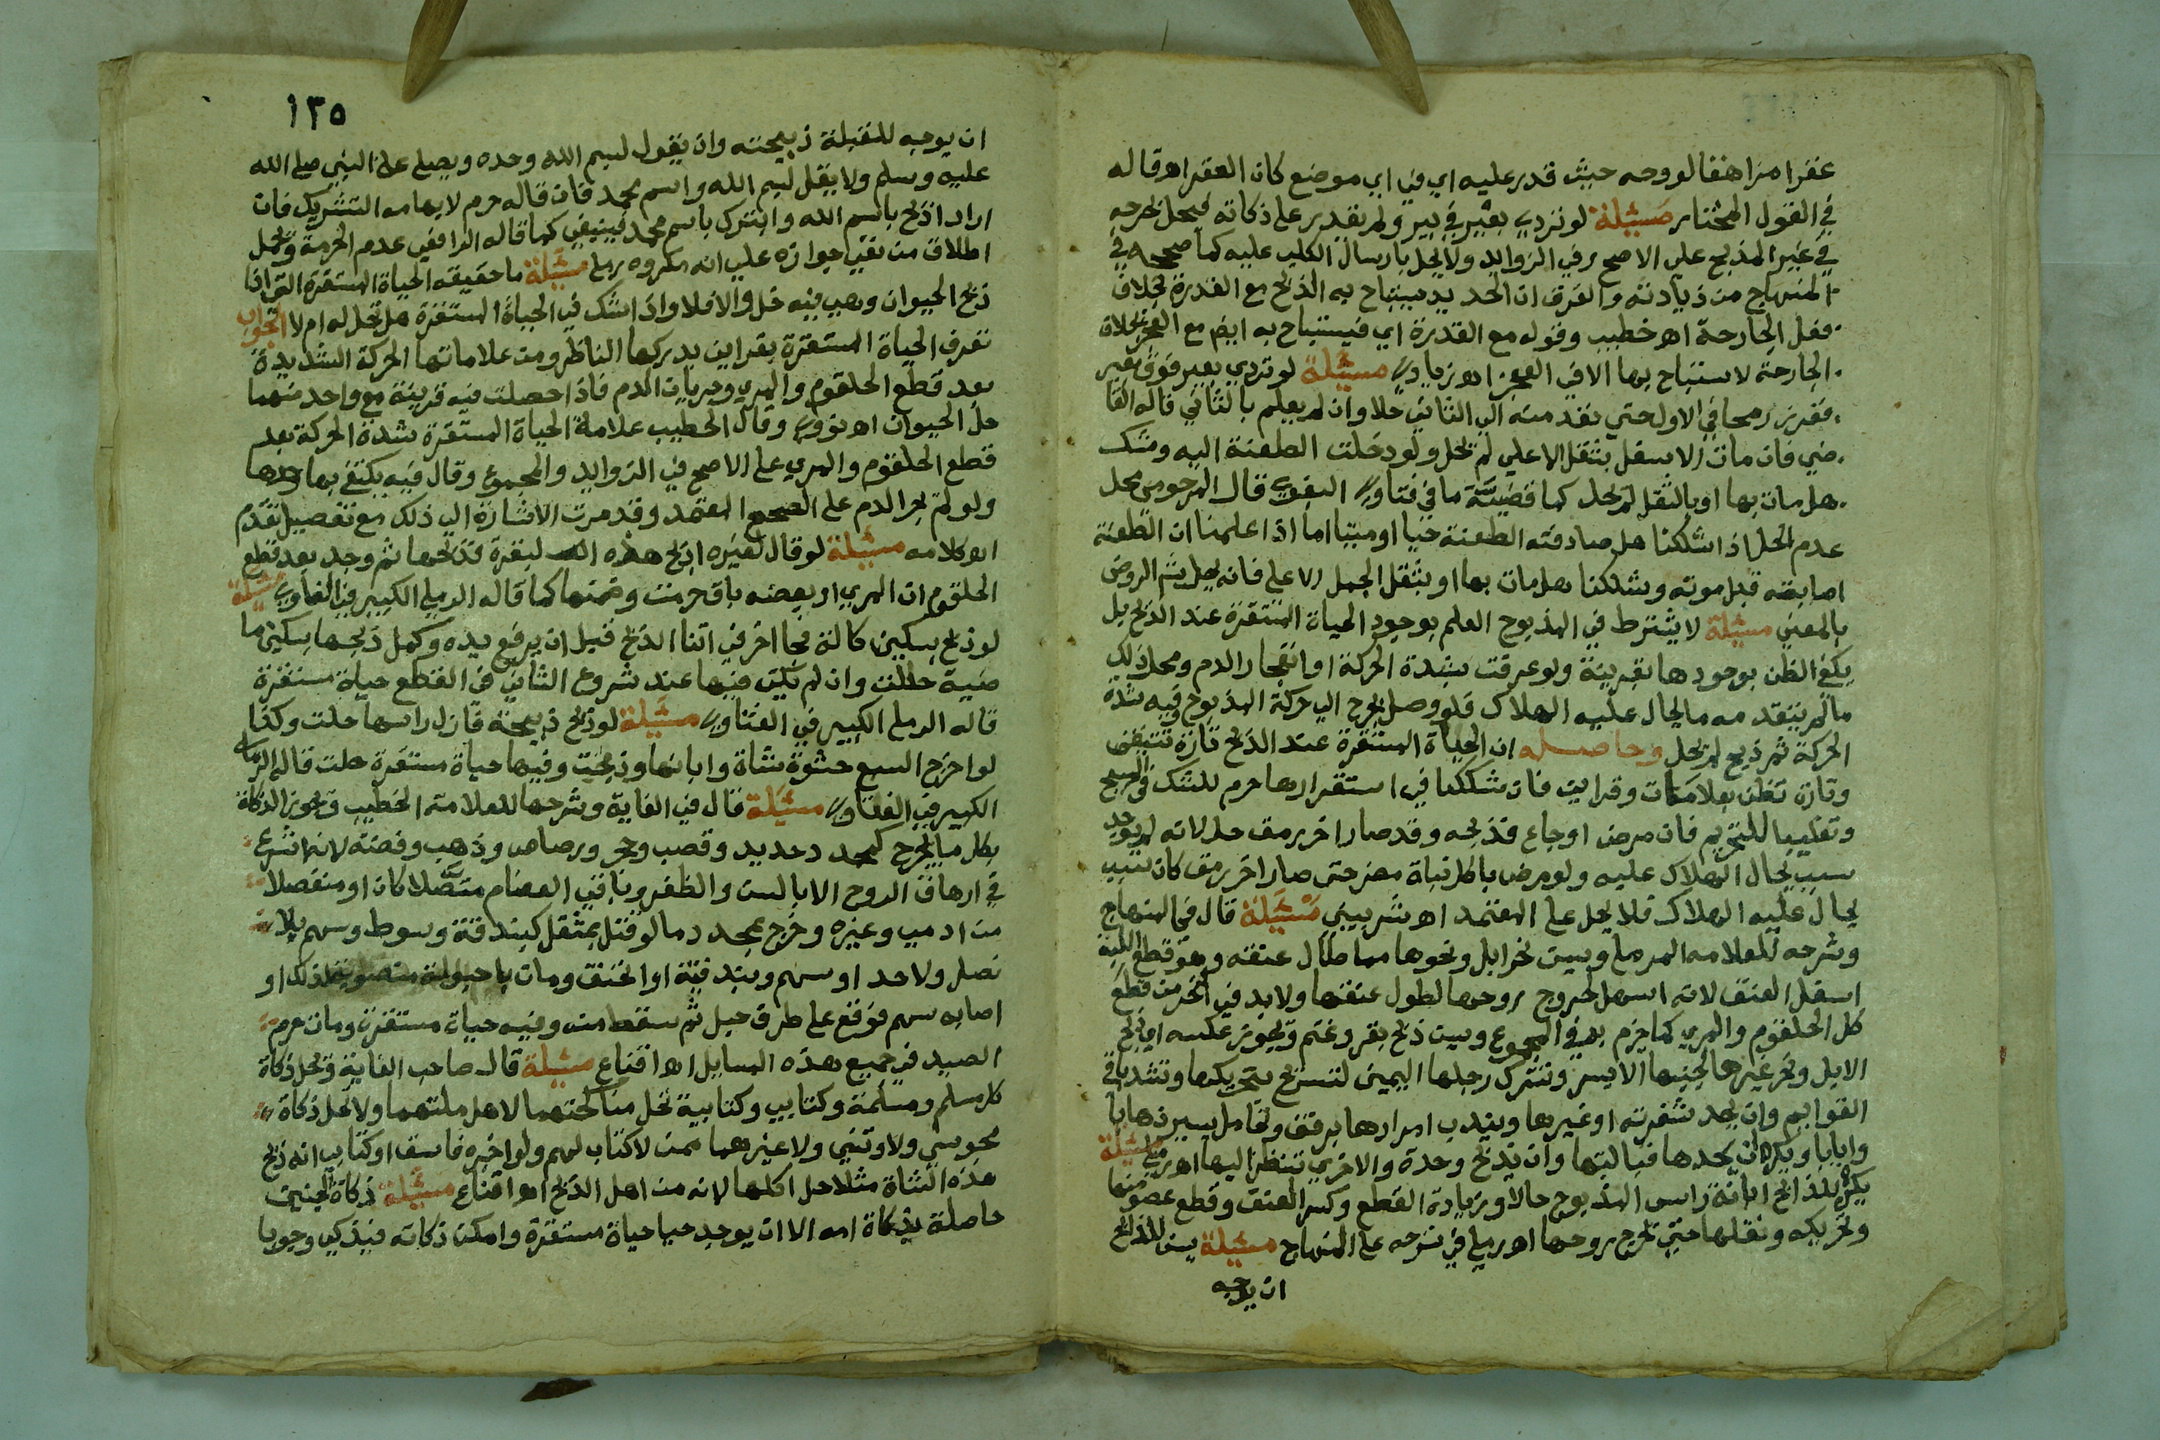 عقرا مزاهقا لروحه حيث قدر عليه اي في اي موضع كان العقر اه قاله
في القول المختار مسئلة لو تردي بعير في بير ولم يقدر علي ذكاته فيحل بجرحه
في غير المذبح علي الاصح في الزوايد ولا يحل بارسال الكلب عليه كما صححه في
المنهاج من زيادته والفرق ان الحديد يستباح به الذبح مع القدرة بخلاف
فعل الجارحة اه خطيب وقوله مع القدرة اي فيستباح به ايض مع العجز بخلاف
الجارحة لا يستباح بها الا في العجز اه زيادي مسئلة لو تردي بعير فوق بعير
فغرز رمحا في الاول حتي نفد منه الي الثاني حلا وان لم يعلم بالثاني قاله القا
ضي فان مات الاسفل بثقل الاعلي لم تحل ولو دخلت الطعنة اليه وشك
هل مات بها او بالثقل لم يحل كما قضيته ما في فتاوي البغوي قال المرحومي محل
عدم الحل اذا شككنا هل صادفته الطعنة حيا او ميتا اما اذا علمنا ان الطعنة
اصابته قبل موته وشككنا هل مات بها او بثقل الجمل الاعلي فانه يحل الروض
بالمعني مسئلة لا يشترط في المذبوح العلم بوجود الحياة المستقرة عند الذبح بل
يكفي الظن بوجودها بقرينة ولو عرفت بشدة الحركة او انفجار الدم ومحل ذلك
مالم يتقدمه ما يحال عليه الهلاك فلو وصل بجرح الي حركة المذبوح وفيه شدة
الحركة ثم ذبح لم يحل وحاصله ان الحياة المستقرة عند الذبح تارة تتيقن
وتارة تظن بعلامات وقراين فان شككنا في استقرارها حرم للشك في المبيح
وتغليبا للتحريم فان مرض او جاع فذبحه وقد صار اخر رمق حل لانه لم يوجد
سبب يحال الهلاك عليه ولو مرض باكل نبات مضر حتي صار اخر رمق كان سبب
يحال عليه الهلاك فلا يحل علي المعتمد اه شربيني مسئلة قال في المنهاج
وشرحه للعلامه الرملي ويسن نحر ابل ونحوها مما طال عنقه وهو قطع اللبة
اسفل العنق لانه اسهل لخروج روحها لطول عنقها ولا بد في النحر من قطع
كل الحلقوم والمري كما جزم به في المجموع ويسن ذبح بقر وغنم ويجوز عكسه اي ذبح
الابل ونحر غيرها لجنبها الايسر وتترك رجلها اليمين لتستريح بتحريكها وتشد باقي
القوايم وان يحد شفرته او غيرها ويندب امرارها برفق وتحامل يسير ذهابا
وايابا ويكره ان يحدها قبالتها وان يذبح وحدة والاخري تنظر اليها اه رملي مسئلة
يكره للذابح ابانة راس المذبوح حالا وزيادة القطع وكسر العنق وقطع عضو منها
وتحريكه ونقلها حتي تخرج روحها اه رملي في شرحه علي المنهاج مسئلة يسن للذابح
ان يوجه
١٣٥
ان يوجه للقبلة ذبيحته وان يقول بسم الله وحده ويصلي علي النبي صلي الله
عليه وسلم ولا يقل بسم الله واسم محمد فان قاله حرم لايهامه التشريك فان
اراد اذبح باسم الله واتبرك باسم محمد فينبغي كما قاله الرافعي عدم الحرمة ويحمل
اطلاق من نفي جوازه علي انه مكروه رملي مسئلة ما حقيقه الحياة المستقرة التي اذا
ذبح الحيوان وهي فيه حل والا فلا واذا شك في الحياة المستقرة هل تحل له ام لا الجواب
تعرف الحياة المستقرة بقراين يدركها الناظر ومن علاماتها الحركة الشديدة
بعد قطع الحلقوم والمري وجريان الدم فاذا حصلت فيه قرينة مع واحد منهما
حل الحيوان اه نووي وقال الخطيب علامة الحياة المستقرة شدة الحركة بعد
قطع الحلقوم والمري علي الاصح في الزوايد والمجموع وقال فيه يكتفي بها وحدها
ولو لم يجر الدم علي الصحيح المعتمد وقد مرت الاشارة الي ذلك مع تفصيل تقدم
اه كلامه مسئلة لو قال لغيره اذبح هذه البقرة فذبحها ثم وجد بعد قطع
الحلقوم ان المري او بعضه باق حرمت وضمنها كما قاله الرملي الكبير في الفتاوي مسئلة
لو ذبح بسكين كالة فجا اخر في اثنا الذبح قبل ان يرفع يده وكمل ذبحها بسكين ما
ضية حللت وان لم تكن فيها عند شروع الثاني في القطع حياة مستقرة
قاله الرملي الكبير في الفتاوي مسئلة لو ذبح ذبيحة فازال راسها حلت وكذا
لو اخرج السبع حشوة شاة وابانها وذبحت وفيها حياة مستقرة حلت قاله الرملي
الكبير في الفتاوي مسئلة قال في الغاية وشرحها للعلامة الخطيب وتجوز الذكاة
بكل ما يجرح كمحدد حديد وقصب وحجر ورصاص وذهب وفضة لانها اسرع
في ارهاق الروح الا بالسن والظفر وباقي العظام متصلا كان او منفصلا
من ادمي وغيره وخرج بمحدد ما لو قتل بمثقل كبندقة وسوط وسهم بلا
نصل ولا حد او سهم وبندقية او انخنق ومات باحبولة منصوبة لذلك او
اصابه سهم فوقع علي طرف جبل ثم سقط منه وفيه حياة مستقرة ومات حرم
الصيد في جميع هذه المسايل اه اقناع مسئلة قال صاحب الغاية وتحل ذكاة
كل مسلم ومسلمة وكتابي وكتابية تحل مناكحتهما لاهل ملتهما ولا تحل ذكاة
مجوسي ولا وثني ولا غيرهما ممن لا كتاب لهم ولو اخبره فاسق او كتابي انه ذبح
هذه الشاة مثلا حل اكلها لانه من اهل الذبح اه اقناع مسئلة ذكاة الجنين
حاصلة بذكاة امه الا ان يوجد حيا حياة مستقرة وامكن ذكاته فيذكي وجوبا